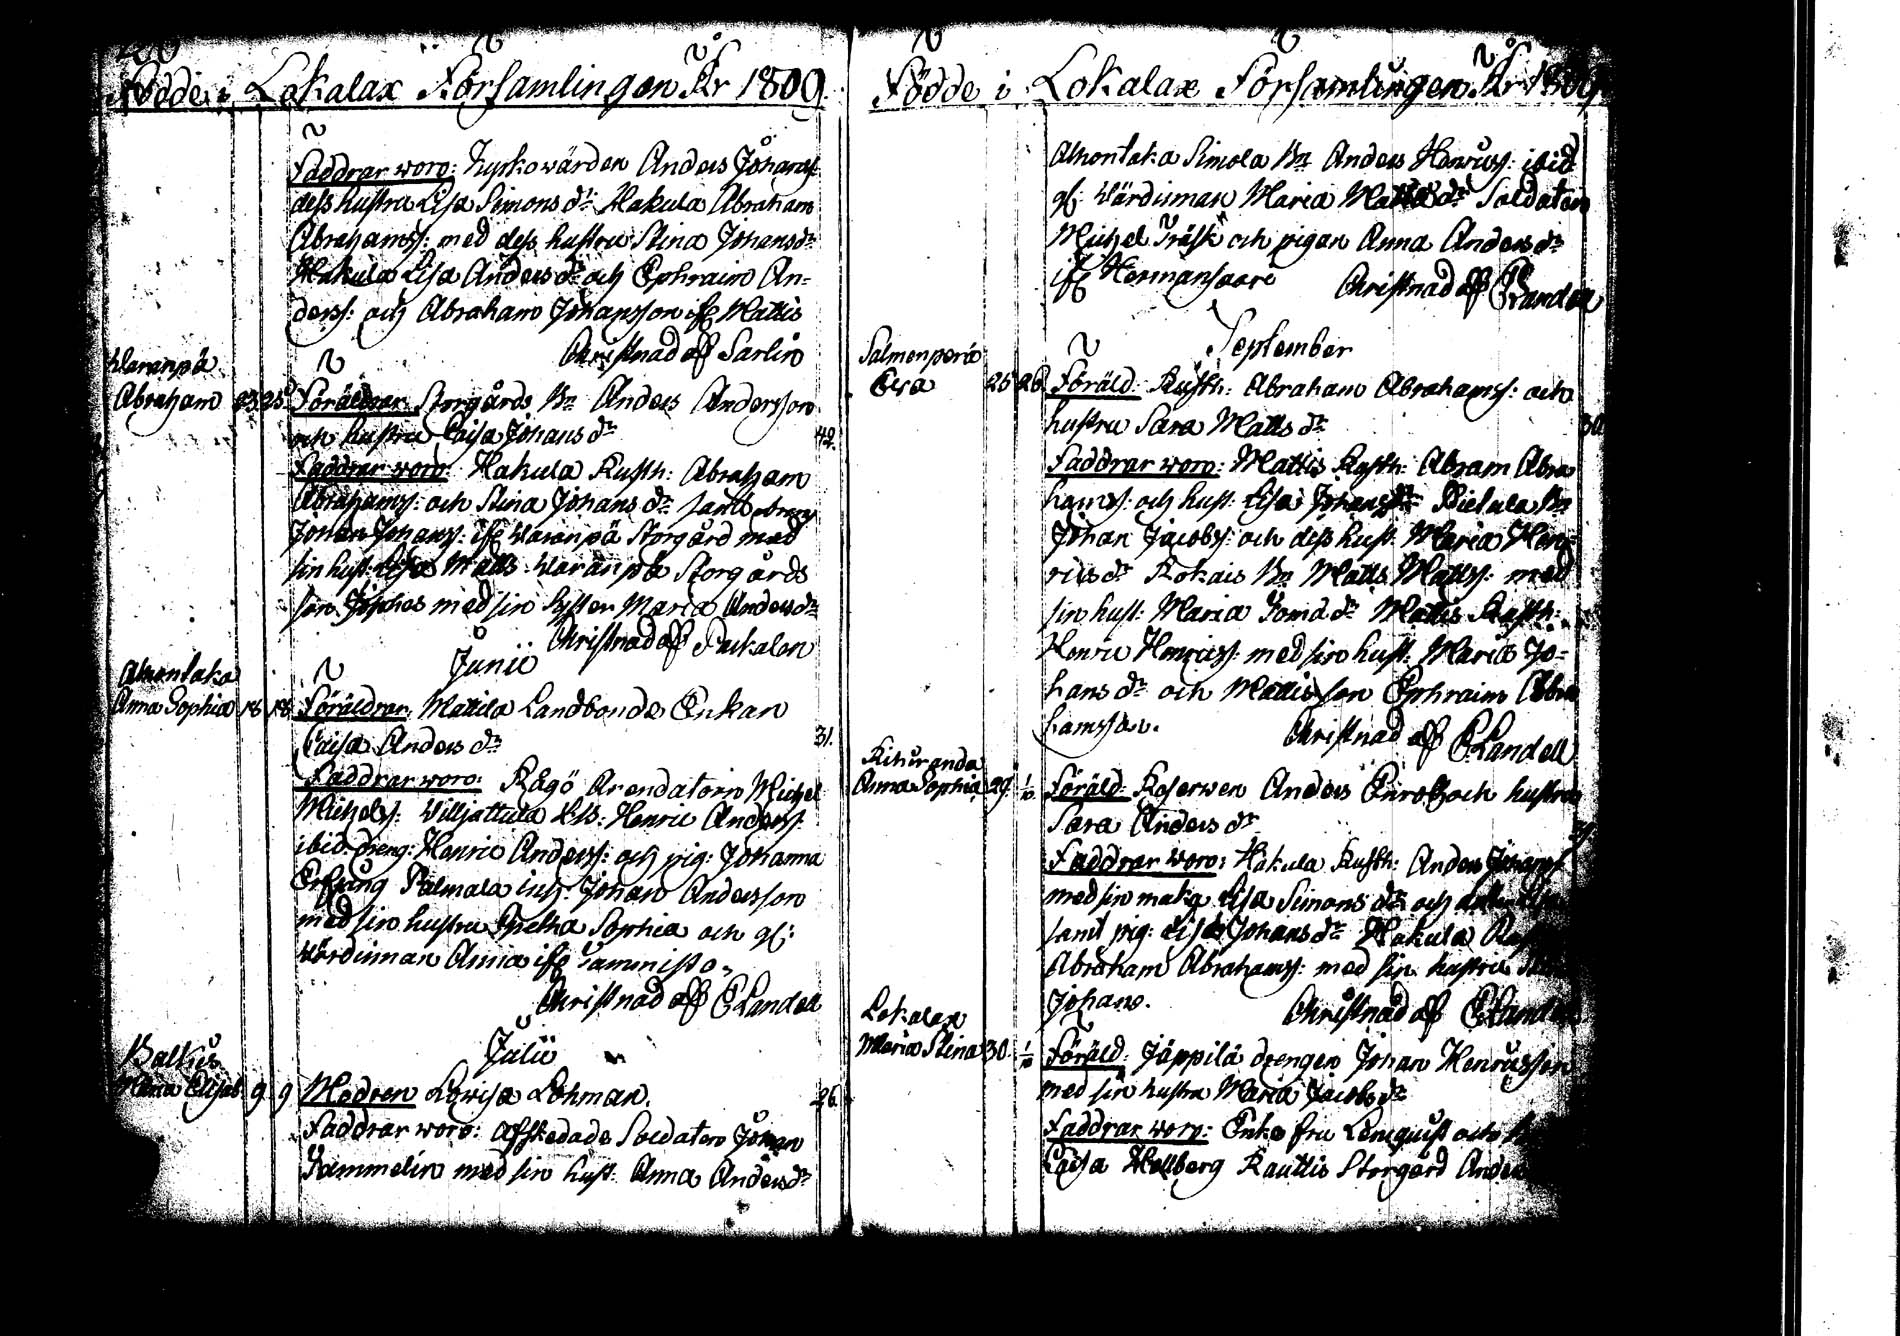 Födde i Lokalax Församlingen År 1809.
Faddrar woro: Kyrkowärden Anders Johanss:
dess hustru Lisa Simons dr Hakula Abraham
Abrahamss: med dess hustru Stina Johans dr
Hakula Lisa Anders dr och Ephraim An-
derss: och Abraham Johansson ifr Mattis
Christnad aff Sarlin
Waranpä
Abraham 23. 25. Föräldrar Storgårds Bn Anders Andersson
och hustru Caisa Johans dr 42.
Faddrar woro: Hakula Rusth: Abraham
Abrahamss: och Stina Johans dr samt
Johan Johanss: ifr Waranpä Storgård med
sin hust: Lisa Matts Waranpä Storgårds
son med sin syster Maria Anders dr
Christnad aff
Junii
Amontaka
Anna Sophia 18. 18. Föräldrar. Mattila Landbonde Enkan
Caisa Anders dr 31.
Faddrar woro: Rågö Arendatorn Michel
Michelss: Henric Anderss:
ibid. dreng: Henric Anderss: och pig: Johanna
Palmala inh: Johan Andersson
med sin hustru Gretha Sophia och gl:
Wärdinnan Anna ifr Tammisto.
Christnad aff C Landell
Julii
Baltus
Maria Elisab. 9. 9 Modren Lowisa Lohman. 26.
Faddrar woro: Afskedade Soldaten Johan
Tammelin med sin hust: Anna Anders dr
Födde i Lokalax Församlingen År 1809
Amontaka Simola Bn Anders Henricss: ibid
gl: Wärdinnan Maria Matts dr Soldaten
Michel Träsk och pigan Anna Anders dr
ifr Hermansaare Christnad aff C Landell
September
Salmenperä
Eva 25 26. Föräld: Rusth: Abraham Abrahamss: och
hustru Sara Matts dr 30
Faddrar woro: Mattis Rusth: Abram Abra
hamss: och hust: Lisa Johans dr Pietula Bn
Johan Jacobss: och dess hust: Maria Hen-
rics dr Kokais Bn Matts Matss: med
sin hust: Maria Tomas dr Mattis Rusth:
Henric Henricss: med sin hust: Maria Jo-
hans dr och Mattis son Ephraim Abra
hamsson. Christnad aff C Landell
Kituranda
Anna Sophia 29. 1/10 Föräld: Reserwen Anders Enroth och hustru
Sara Anders dr
Faddrar woro: Hakula Rusth: Anders Johanss
med sin maka Lisa Simons dr och
samt pig: Lisa Johans dr Hakula
Abraham Abrahamss: med sin hustru
Johans. Christnad aff C Landell
Lokalax
Maria Stina 30. 1/10 Föräld: Jäppilä drengen Johan Henricsson
med sin hustru Maria Jacobs dr
Faddrar woro: Enke fru Lenquist och
Caisa Hellberg Rautlis Storgård Anders